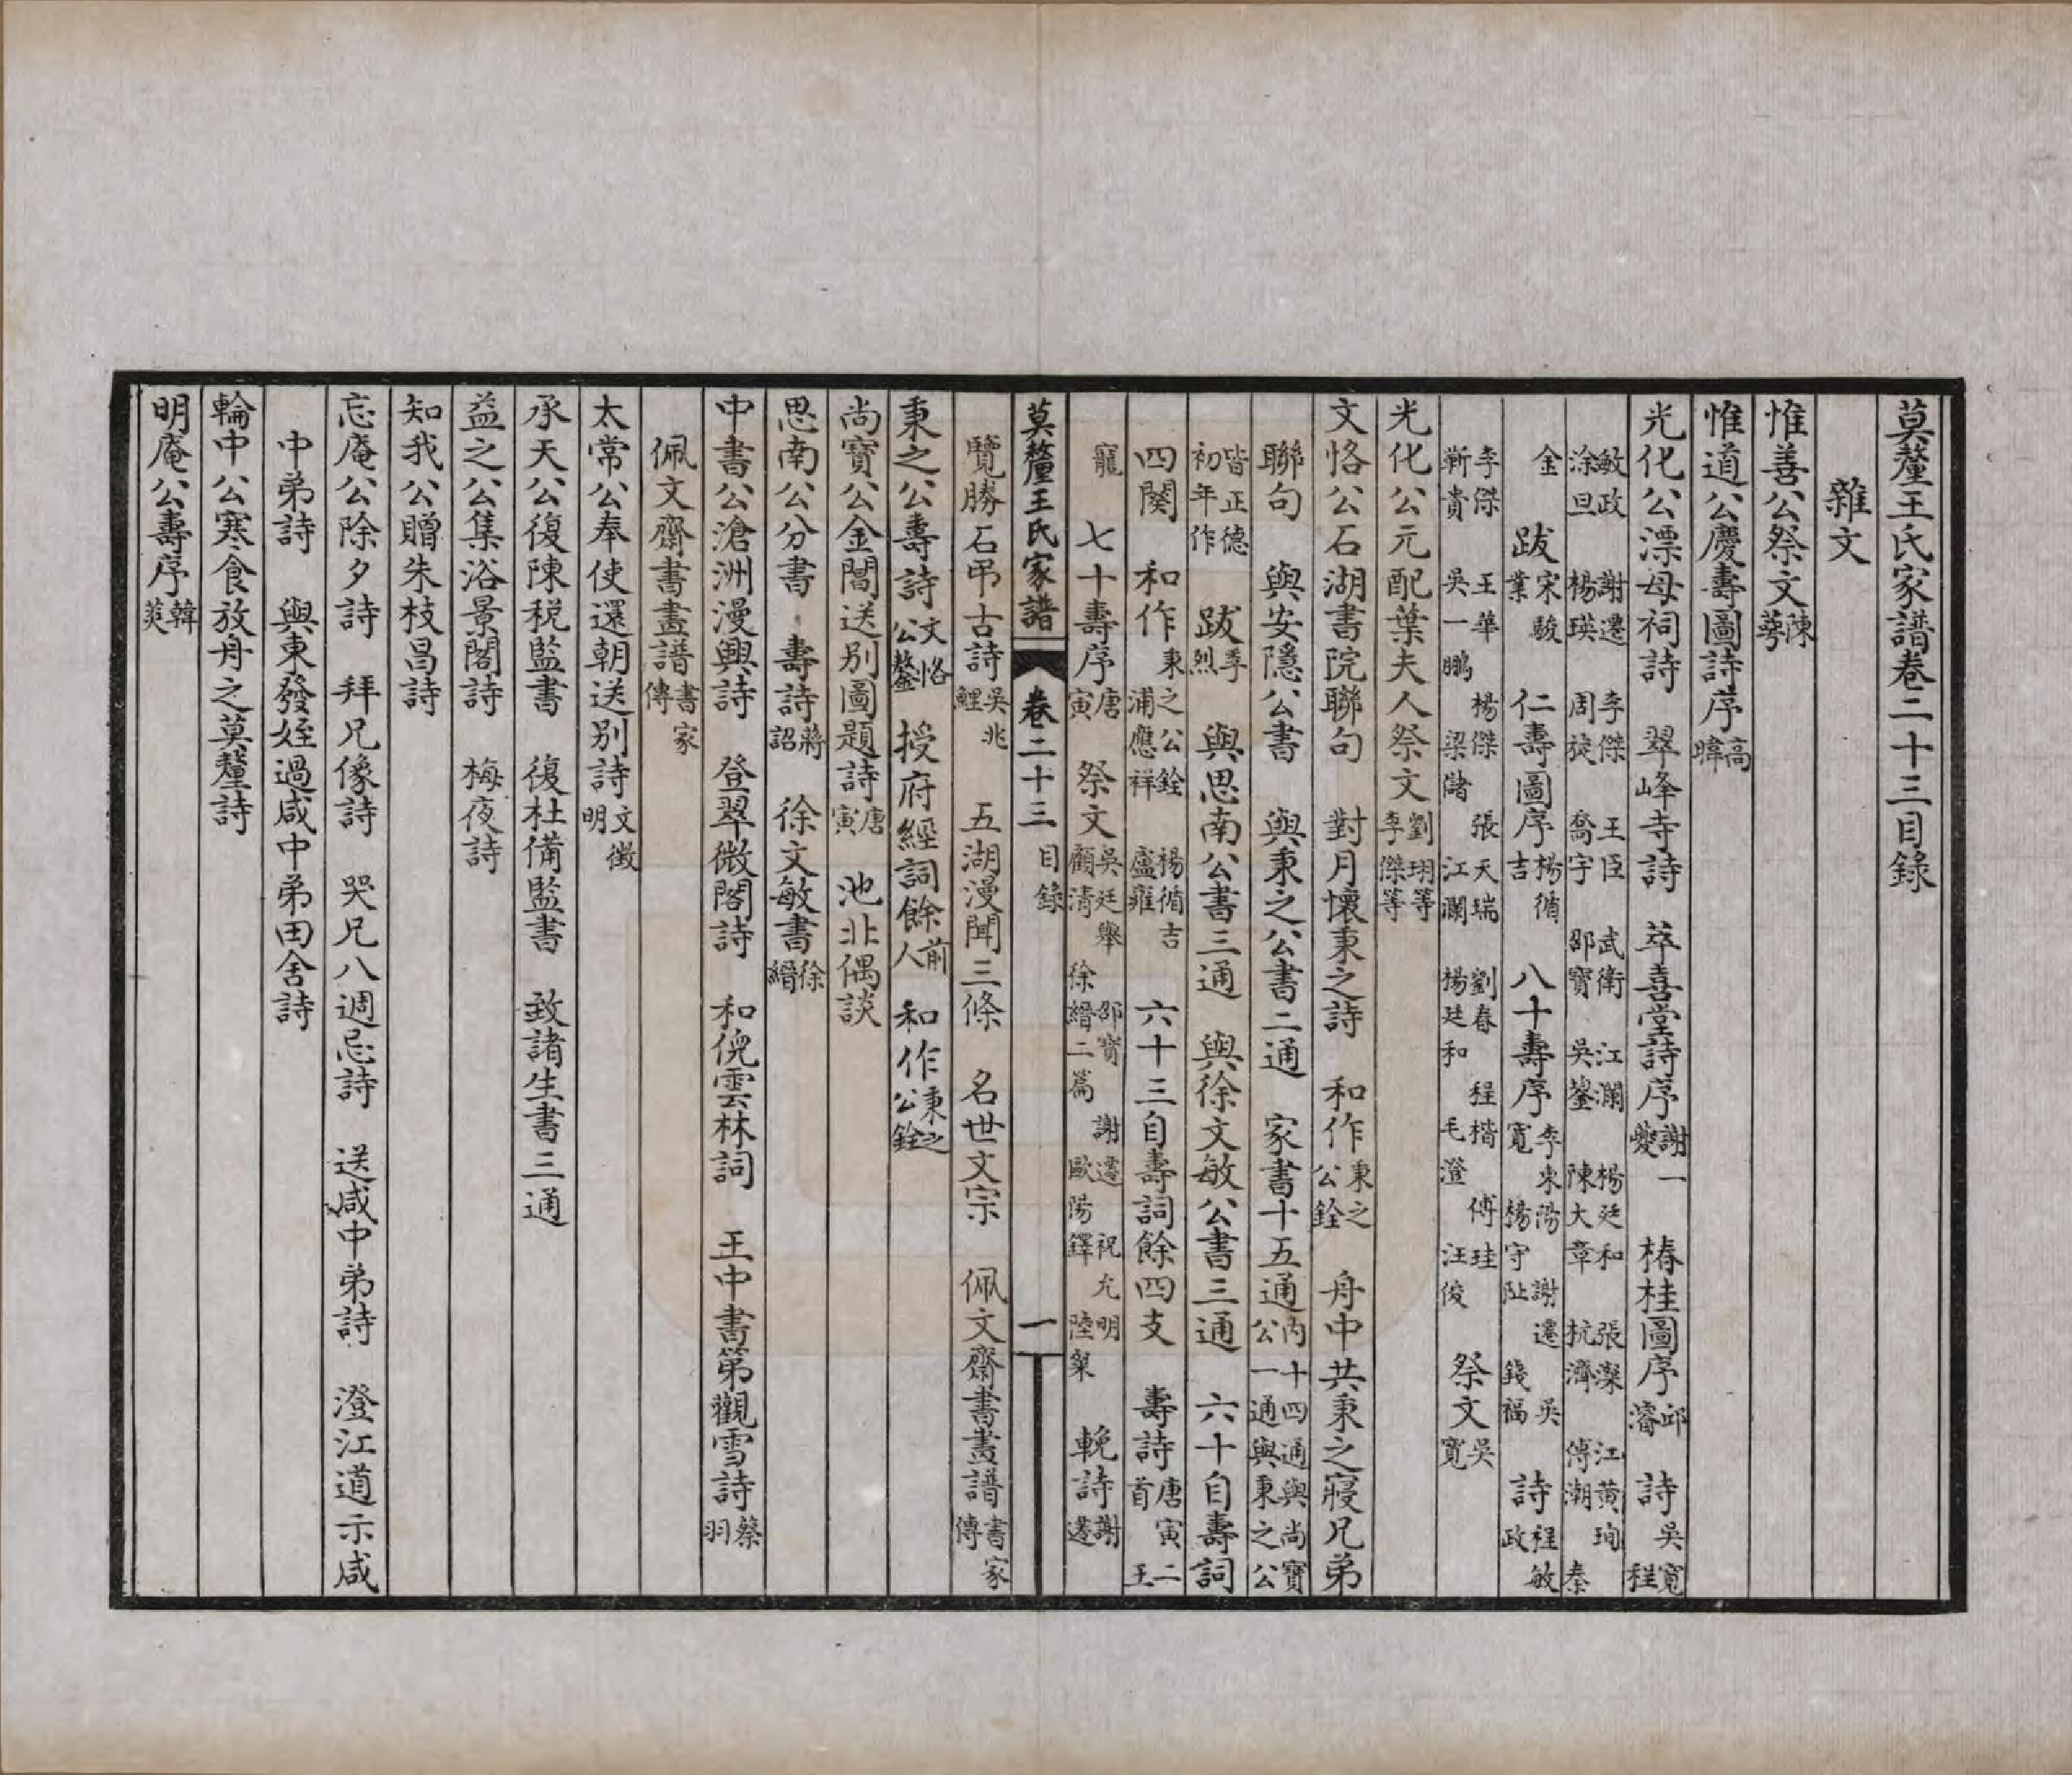 莫釐王氏家譜卷二十三目錄
雜文
惟善公祭文陳蕚
惟道公慶壽圖詩序高暐
光化公漂母祠詩　翠峰寺詩　萃喜堂詩序謝一夔　椿桂圖序邱濬　詩吳寬　程
敏政　謝遷　李傑　王臣　武衛　江瀾　楊廷和　張澯　江黃珣
涂旦　楊瑛　周旋　喬宇　邵寶　吳鋆　陳大章　杭濟　傅潮　秦
金　跋宋駿業　仁壽圖序楊循吉　八十壽序李東陽　謝遷　吳寬　楊守阯　錢福　詩程敏政
李傑　王華　楊傑　張天瑞　劉春　程楷　傅珪
靳貴　吳一鵬　梁儲　江瀾　楊廷和　毛澄　汪俊　祭文吳寬
光化公元配葉夫人祭文劉珝等李傑等
文恪公石湖書院聯句　對月懷秉之詩　和作秉之公銓　舟中共秉之寢兄弟
聯句　與安隱公書　與秉之公書二通　家書十五通內十四通與尚寶公一通與秉之公
皆正德初年作　跋季烈　與思南公書三通　與徐文敏公書三通　六十自壽詞
四闋　和作秉之公銓　楊循吉　浦應祥　盧雍　六十三自壽詞餘四支　壽詩唐寅二首　王
寵　七十壽序唐寅　祭文吳廷舉　邵寶　謝遷　祝允明　顧清　徐縉二篇　歐陽鐸　陸粲　輓詩謝遷
莫釐王氏家譜　卷二十三　目錄　一
覽勝石弔古詩吳兆鯉　五湖漫聞三條　名世文宗　佩文齋書畫譜書家傳
秉之公壽詩文恪公鏊　授府經詞餘前人　和作秉之公銓
尚寶公金閶送別圖題詩唐寅　池北偶談
思南公分書　壽詩蔣詔　徐文敏書徐縉
中書公滄洲漫興詩　登翠微閣詩　和倪雲林詞　王中書第觀雪詩蔡羽
佩文齋書畫譜書家傳
太常公奉使還朝送別詩文徵明
承天公復陳税監書　復杜備監書　致諸生書三通
益之公集浴景閣詩　梅夜詩
知我公贈朱枝昌詩
忘庵公除夕詩　拜兄像詩　哭兄八週忌詩　送咸中弟詩　澄江道示咸
中弟詩　與東發姪過咸中弟田舍詩
輪中公寒食放舟之莫釐詩
明庵公壽序韓菼